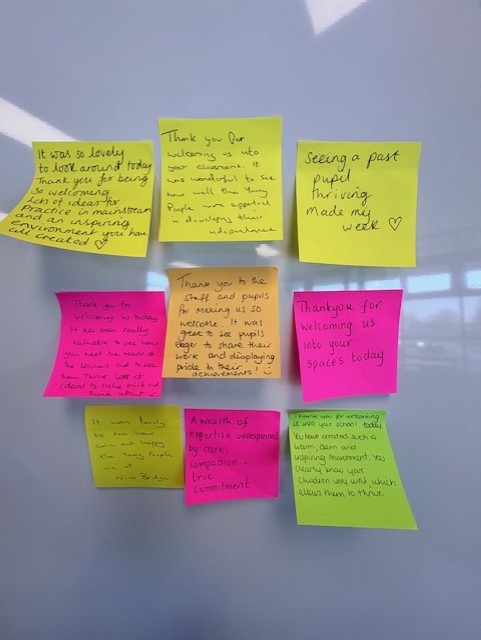 It was so lovely
to look around today
Thank you for being
so welcoming
Lots of ideas for
practice in mainstream
and an inspiring
environment you have
all created ♡
Thank you for
welcoming us into
your classrooms. It
was wonderful to see
how well the Young
People were supported
in developing their
independence
Seeing a past
pupil
thriving
made my
week ♡
Thank you for
welcoming us today
It has been really
valuable to see how
you meet the needs of
the learners and to see
them thrive. Lots of
ideas to take back and
think about
Thank you to the
staff and pupils
for making us so
welcome. It was
great to see pupils
eager to share their
work and displaying
pride in their
achievements! :)
Thankyou for
welcoming us
into your
spaces today
It was lovely
to see how
calm and happy
the Young People
are at
New Bridge
A wealth of
expertise underpinned
by care,
compassion +
true
commitment
Thank you for welcoming
us into your school today
You have created such a
warm, calm and
inspiring environment. You
clearly know your
children very well which
allows them to thrive